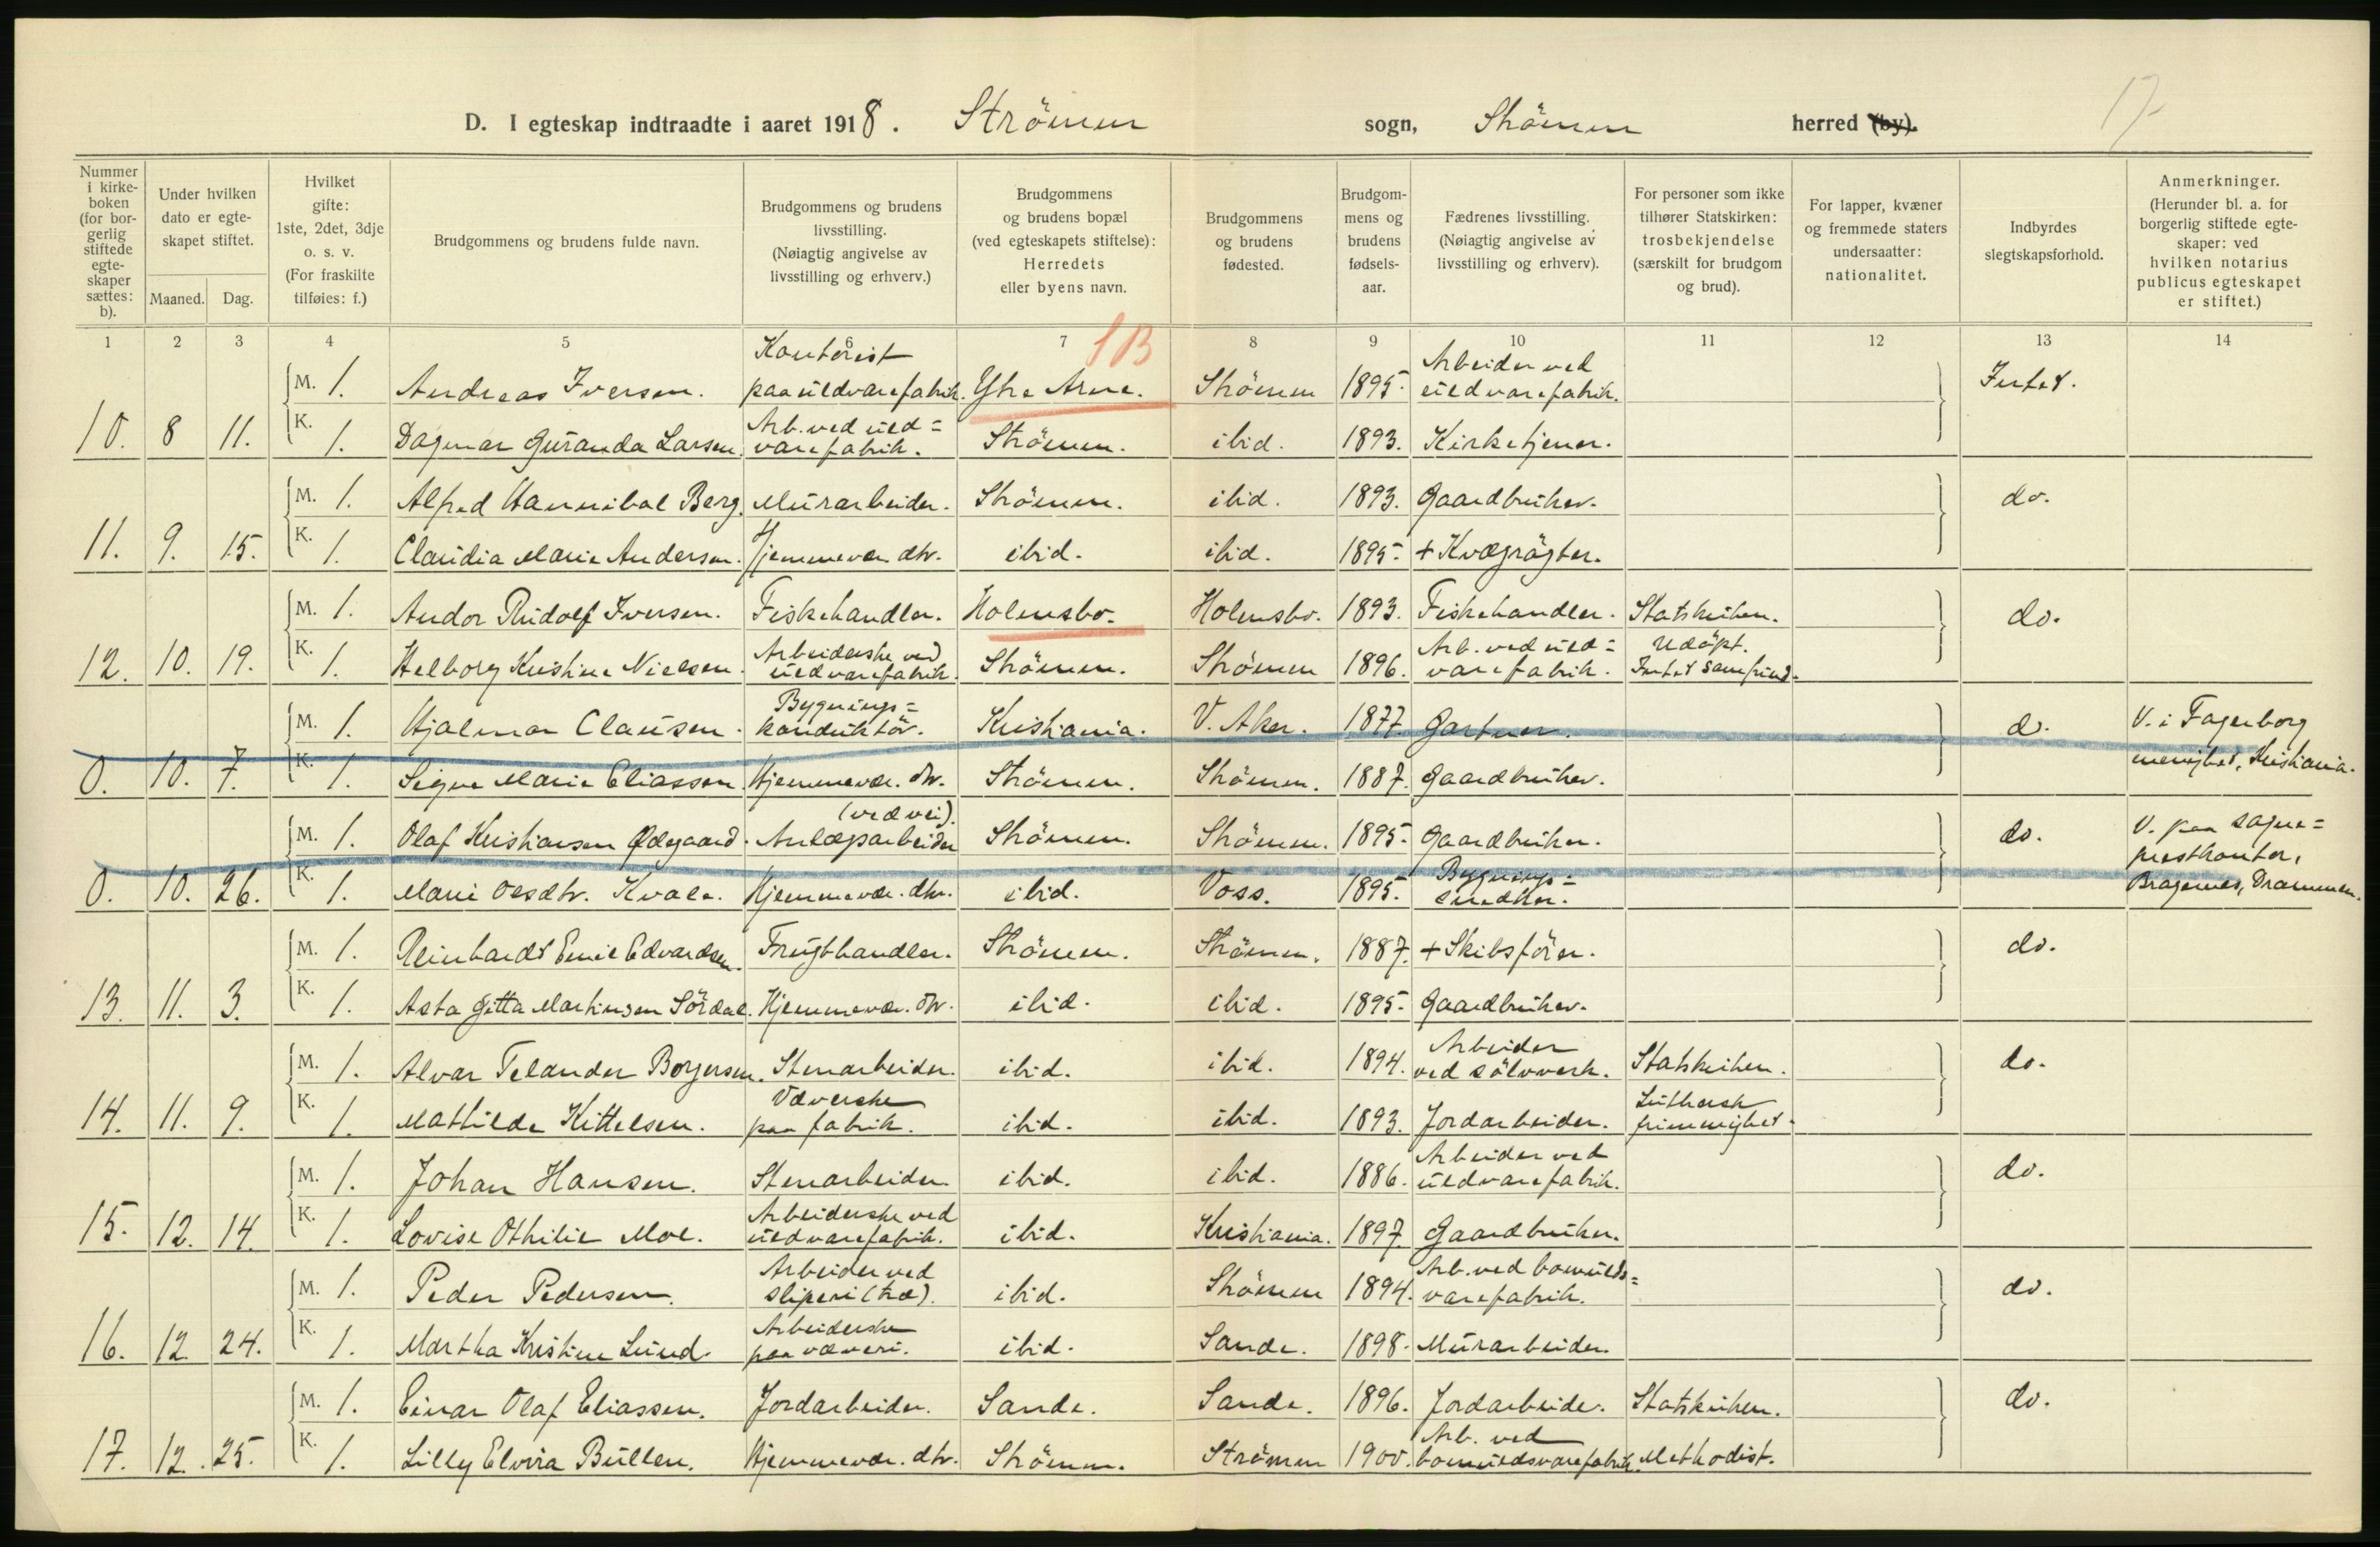 D. I egteskap indtraadte i aaret 1918. Strömm sogn, Strömm herred (by).
17
Nummer i kirkeboken (for borgerlig stiftede egteskaper sættes: b).
Under hvilken dato er egteskapet stiftet.
Maaned. Dag.
Hvilket gifte: 1ste, 2det, 3dje o. s. v. (For fraskilte tilføies: f.)
Brudgommens og brudens fulde navn.
Brudgommens og brudens livsstilling. (Nøiagtig angivelse av livsstilling og erhverv.)
Brudgommens og brudens bopæl (ved egteskapets stiftelse): Herredets eller byens navn.
Brudgommens og brudens fødested.
Brudgommens og brudens fødselsaar.
Fædrenes livsstilling. (Nøiagtig angivelse av livsstilling og erhverv).
For personer som ikke tilhører Statskirken: trosbekjendelse (særskilt for brudgom og brud).
For lapper, kvæner og fremmede staters undersaatter: nationalitet.
Indbyrdes slegtskapsforhold.
Anmerkninger. (Herunder bl. a. for borgerlig stiftede egteskaper: ved hvilken notarius publicus egteskapet er stiftet.)
1 2 3 4 5 6 7 8 9 10 11 12 13 14
M. 1. Andreas Iversen. Kontorist paa uldvarefabrik. Ytre Arne. Strömm 1895. Arbeider ved uldvarefabrik. Intet.
10. 8 11. K. 1. Dagmar Guranda Larsen. Arb. ved uld= varefabrik. Strömm. ibid. 1893. Kirketjener.
M. 1. Alfred Hannibal Berg. Murarbeider. Strömm. ibid. 1893. Gaardbruker. do.
11. 9. 15. K. 1. Claudia Marie Andersen. Hjemmevær. dtr. ibid. ibid. 1895. + Kvægrögter.
M. 1. Andor Rudolf Iversen. Fiskehandler. Holmsbo. Holmsbo. 1893. Fiskehandler. Statskirken. do.
12. 10. 19. K. 1. Helborg Kristine Nielsen. Arbeiderske ved uldvarefabrik. Strömm. Strömm 1896. Arb. ved uld= varefabrik. Udöpt. Intet samfund.
M. 1. Hjalmar Clausen. Bygnings= konduktör. Kristiania. V. Aker. 1877. Gartner. do. V. i Fagerborg menighet, Kristiania.
0. 10. 7. K. 1. Signe Marie Eliassen Hjemmevær. dtr. Strömm. Strömm. 1887. Gaardbruker.
M. 1. Olaf Kristiansen Ødegaard. Anlægsarbeider (ved vei). Strömm. Strömm. 1895. Gaardbruker. do. V. paa sogne= prestkontor, Bragernes, Drammen.
0. 10. 26. K. 1. Marie Olsdtr. Kvale. Hjemmevær. dtr. ibid. Voss. 1895. Bygnings= snedker.
M. 1. Reinhardt Emil Edvardsen. Frugthandler. Strömm. Strömm. 1887. + Skibsförer. do.
13. 11. 3. K. 1. Asta Gitta Martinsen Sördal. Hjemmevær. dtr. ibid. ibid. 1895. Gaardbruker.
M. 1. Alvar Telander Borgersen. Stenarbeider. ibid. ibid. 1894. Arbeider ved sölvverk. Statskirken. do.
14. 11. 9. K. 1. Mathilde Kittelsen. Væverske paa fabrik. ibid. ibid. 1893. Jordarbeider. Luthersk frimenighet.
M. 1. Johan Hansen. Stenarbeider ibid. ibid. 1886. Arbeider ved uldvarefabrik. do.
15. 12. 14. K. 1. Lovise Othilie Moe. Arbeiderske ved uldvarefabrik. ibid. Kristiania. 1897. Gaardbruker.
M. 1. Peder Pedersen. Arbeider ved sliperi (træ). ibid. Strömm 1894. Arb. ved bomulds= varefabrik. do.
16. 12. 24. K. 1. Martha Kristine Lund. Arbeiderske paa væveri. ibid. Sande. 1898. Murarbeider.
M. 1. Einar Olaf Eliassen. Jordarbeider. Sande. Sande. 1896. Jordarbeider. Statskirken. do.
17. 12. 25. K. 1. Lilly Elvira Bullen. Hjemmevær. dtr. Strömm. Strömm 1900. Arb. ved bomuldsvarefabrik. Methodist.